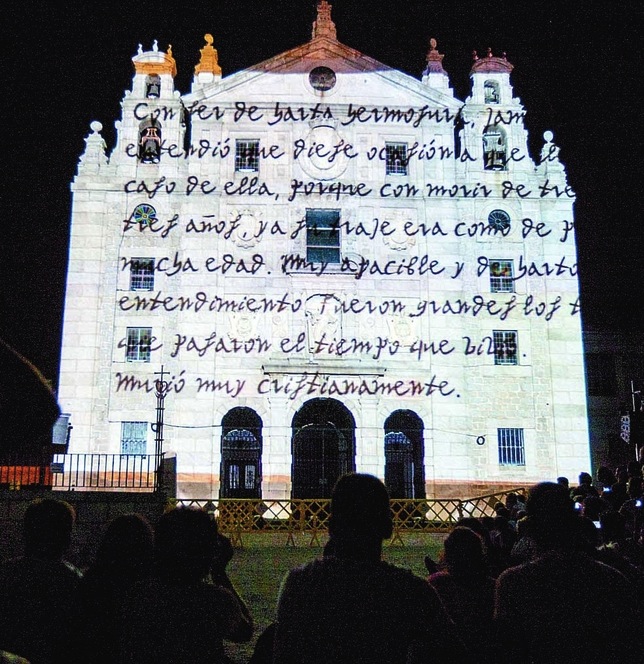 Con ser de harta hermosura, jam
entendió que diese ocasión a que ell
caso de ella, porque con morir de tre
tres años, ya su traje era como de p
mucha edad. Muy apacible y de harto
entendimiento Fueron grandes los t
que pasaron el tiempo que vivió.
Murió muy cristianamente.